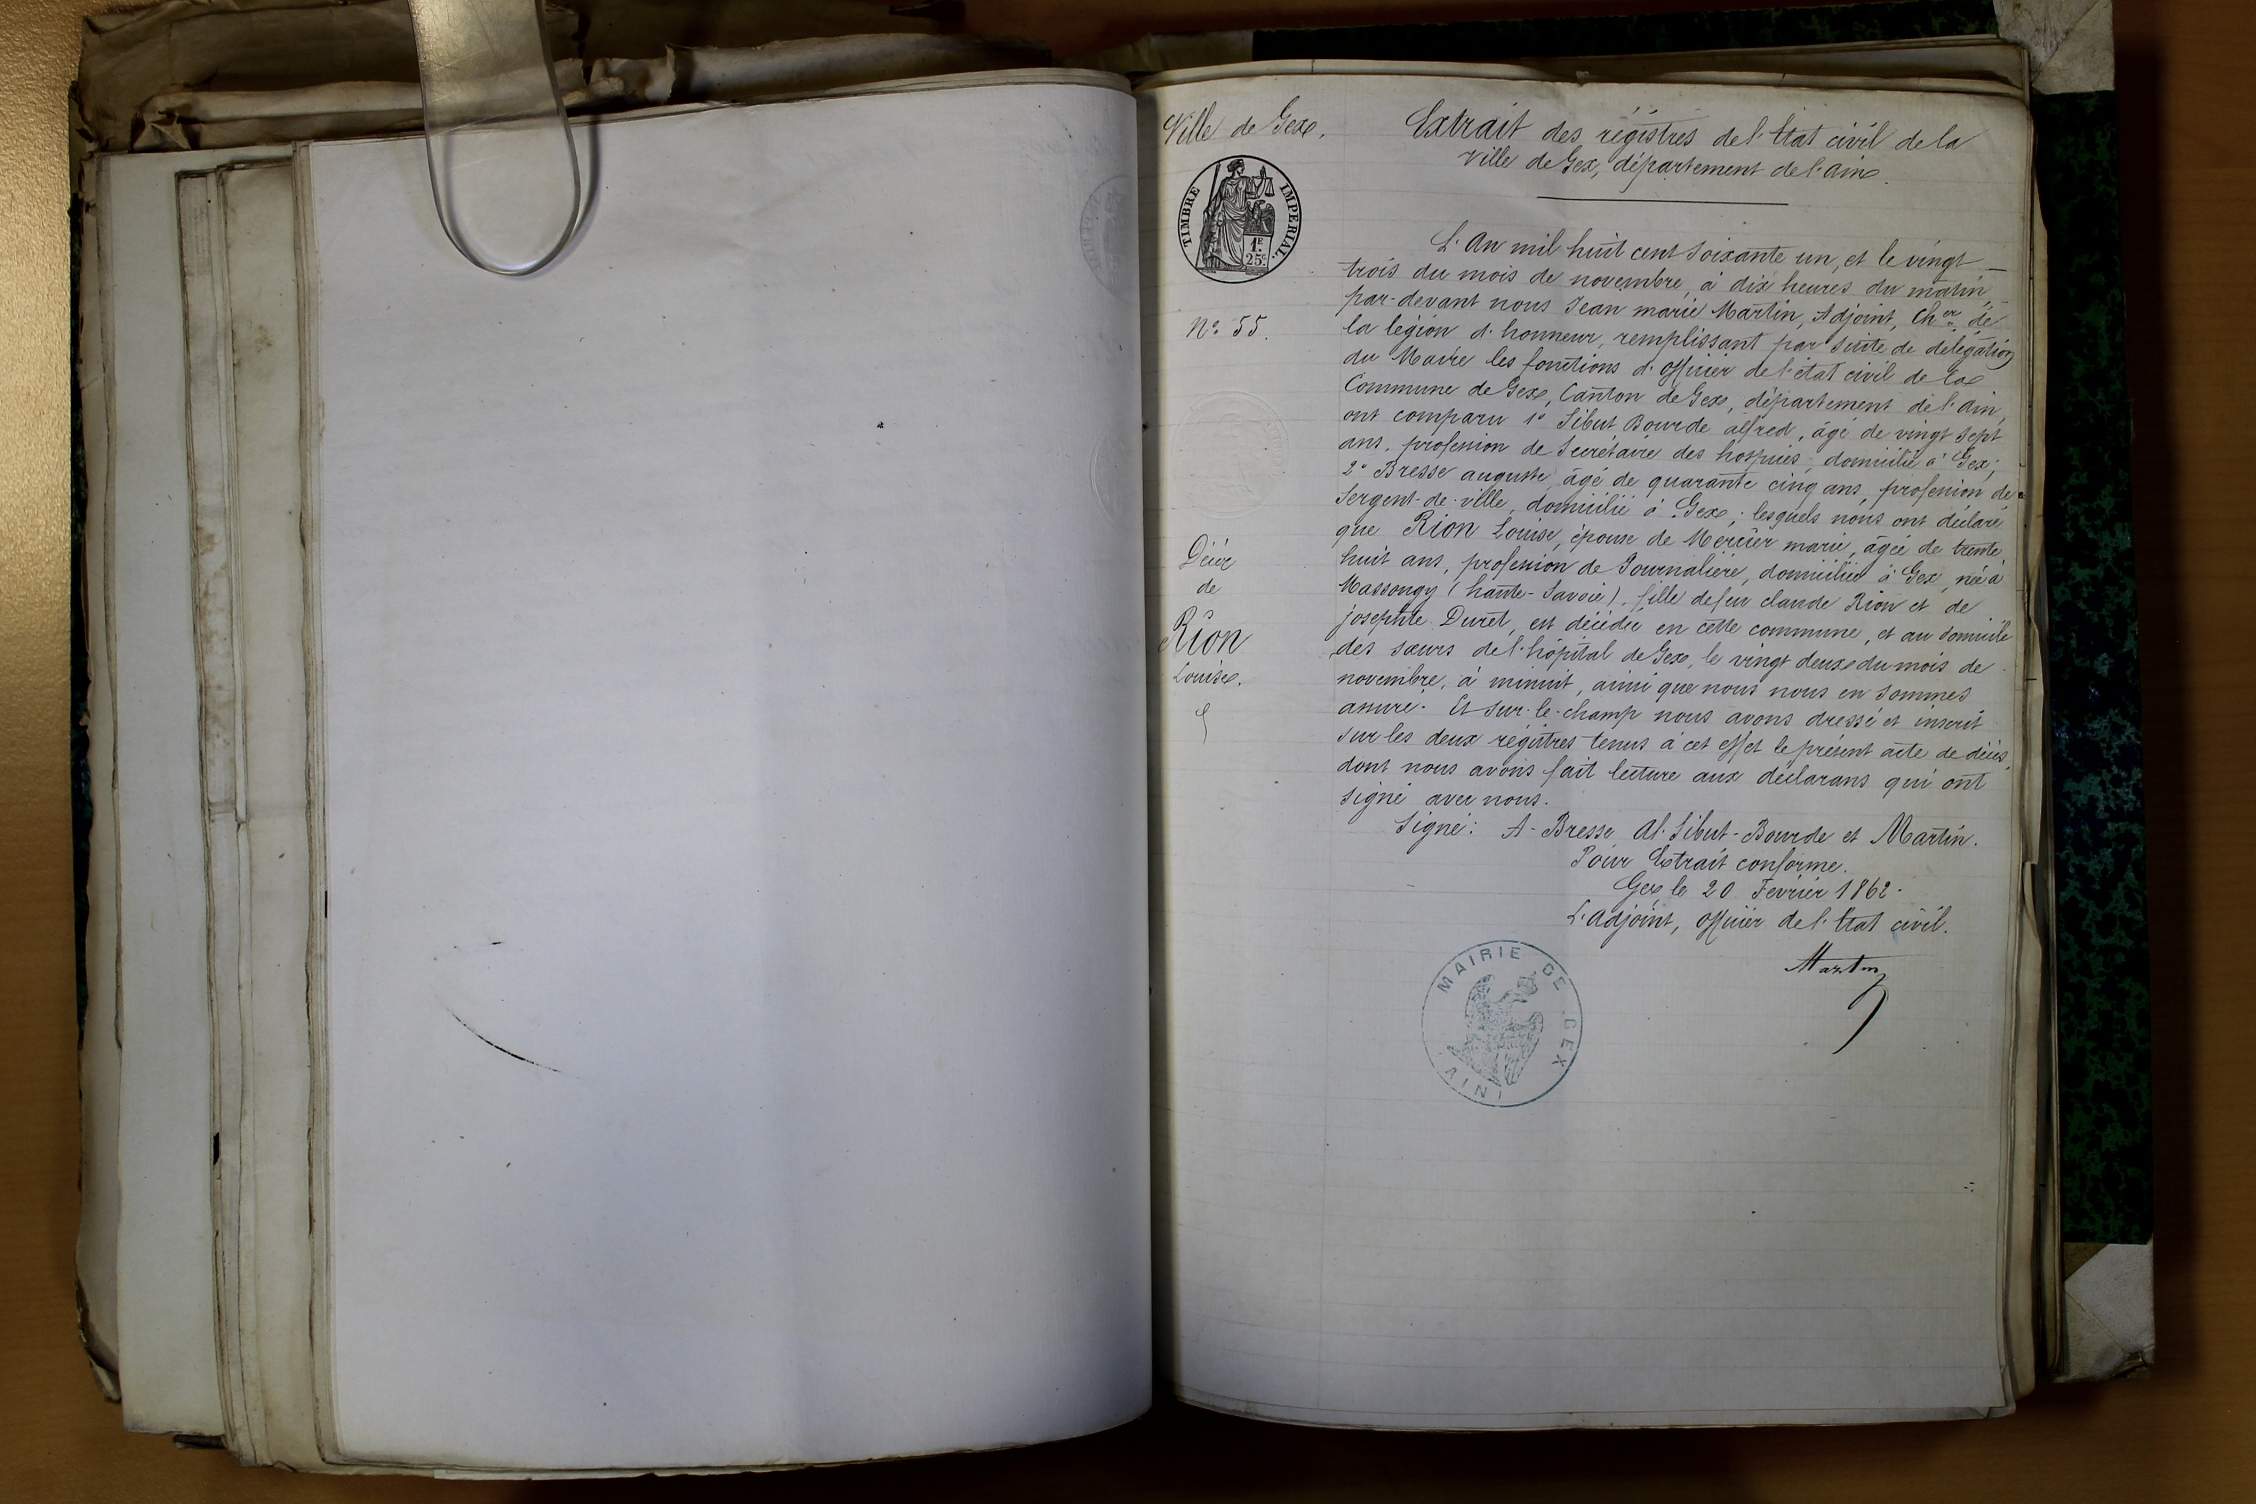 Ville de Gex.
TIMBRE IMPERIAL.
1F
25c.
N° 55.
Décès
de
Rion
Louise.
Extrait des régistres de l'Etat civil de la
ville de Gex, département de l'ain.
L'An mil huit cent soixante un, et le vingt
trois du mois de novembre, à dix heures du matin,
par-devant nous Jean marie Martin, Adjoint, Cher de
la légion d'honneur, remplissant par suite de délégation
du Maire les fonctions d'officier de l'état civil de la
Commune de Gex, Canton de Gex, département de l'ain,
ont comparu 1° Sibut Bourde alfred, âgé de vingt sept
ans, profession de Secrétaire des hospices, domicilié à Gex;
2° Bresse auguste, âgé de quarante cinq ans, profession de
Sergent-de-ville, domicilié à Gex; lesquels nous ont déclaré
que Rion Louise, épouse de Mercier marie, âgée de trente
huit ans, profession de Journalière, domiciliée à Gex, née à
Massongy (haute-Savoie), fille de feu claude Rion et de
josephte Duret, est décédée en cette commune, et au domicile
des sœurs de l'hôpital de Gex, le vingt deux du mois de
novembre, à minuit, ainsi que nous nous en sommes
assuré. Et sur-le-champ nous avons dressé et inscrit
sur les deux régistres tenus à cet effet le présent acte de décès,
dont nous avons fait lecture aux déclarans qui ont
signé avec nous.
Signé: A. Bresse, Al. Sibut-Bourde et Martin.
Pour Extrait conforme.
Gex le 20 Février 1862.
L'adjoint, officier de l'Etat civil.
Martin
MAIRIE DE GEX
AIN